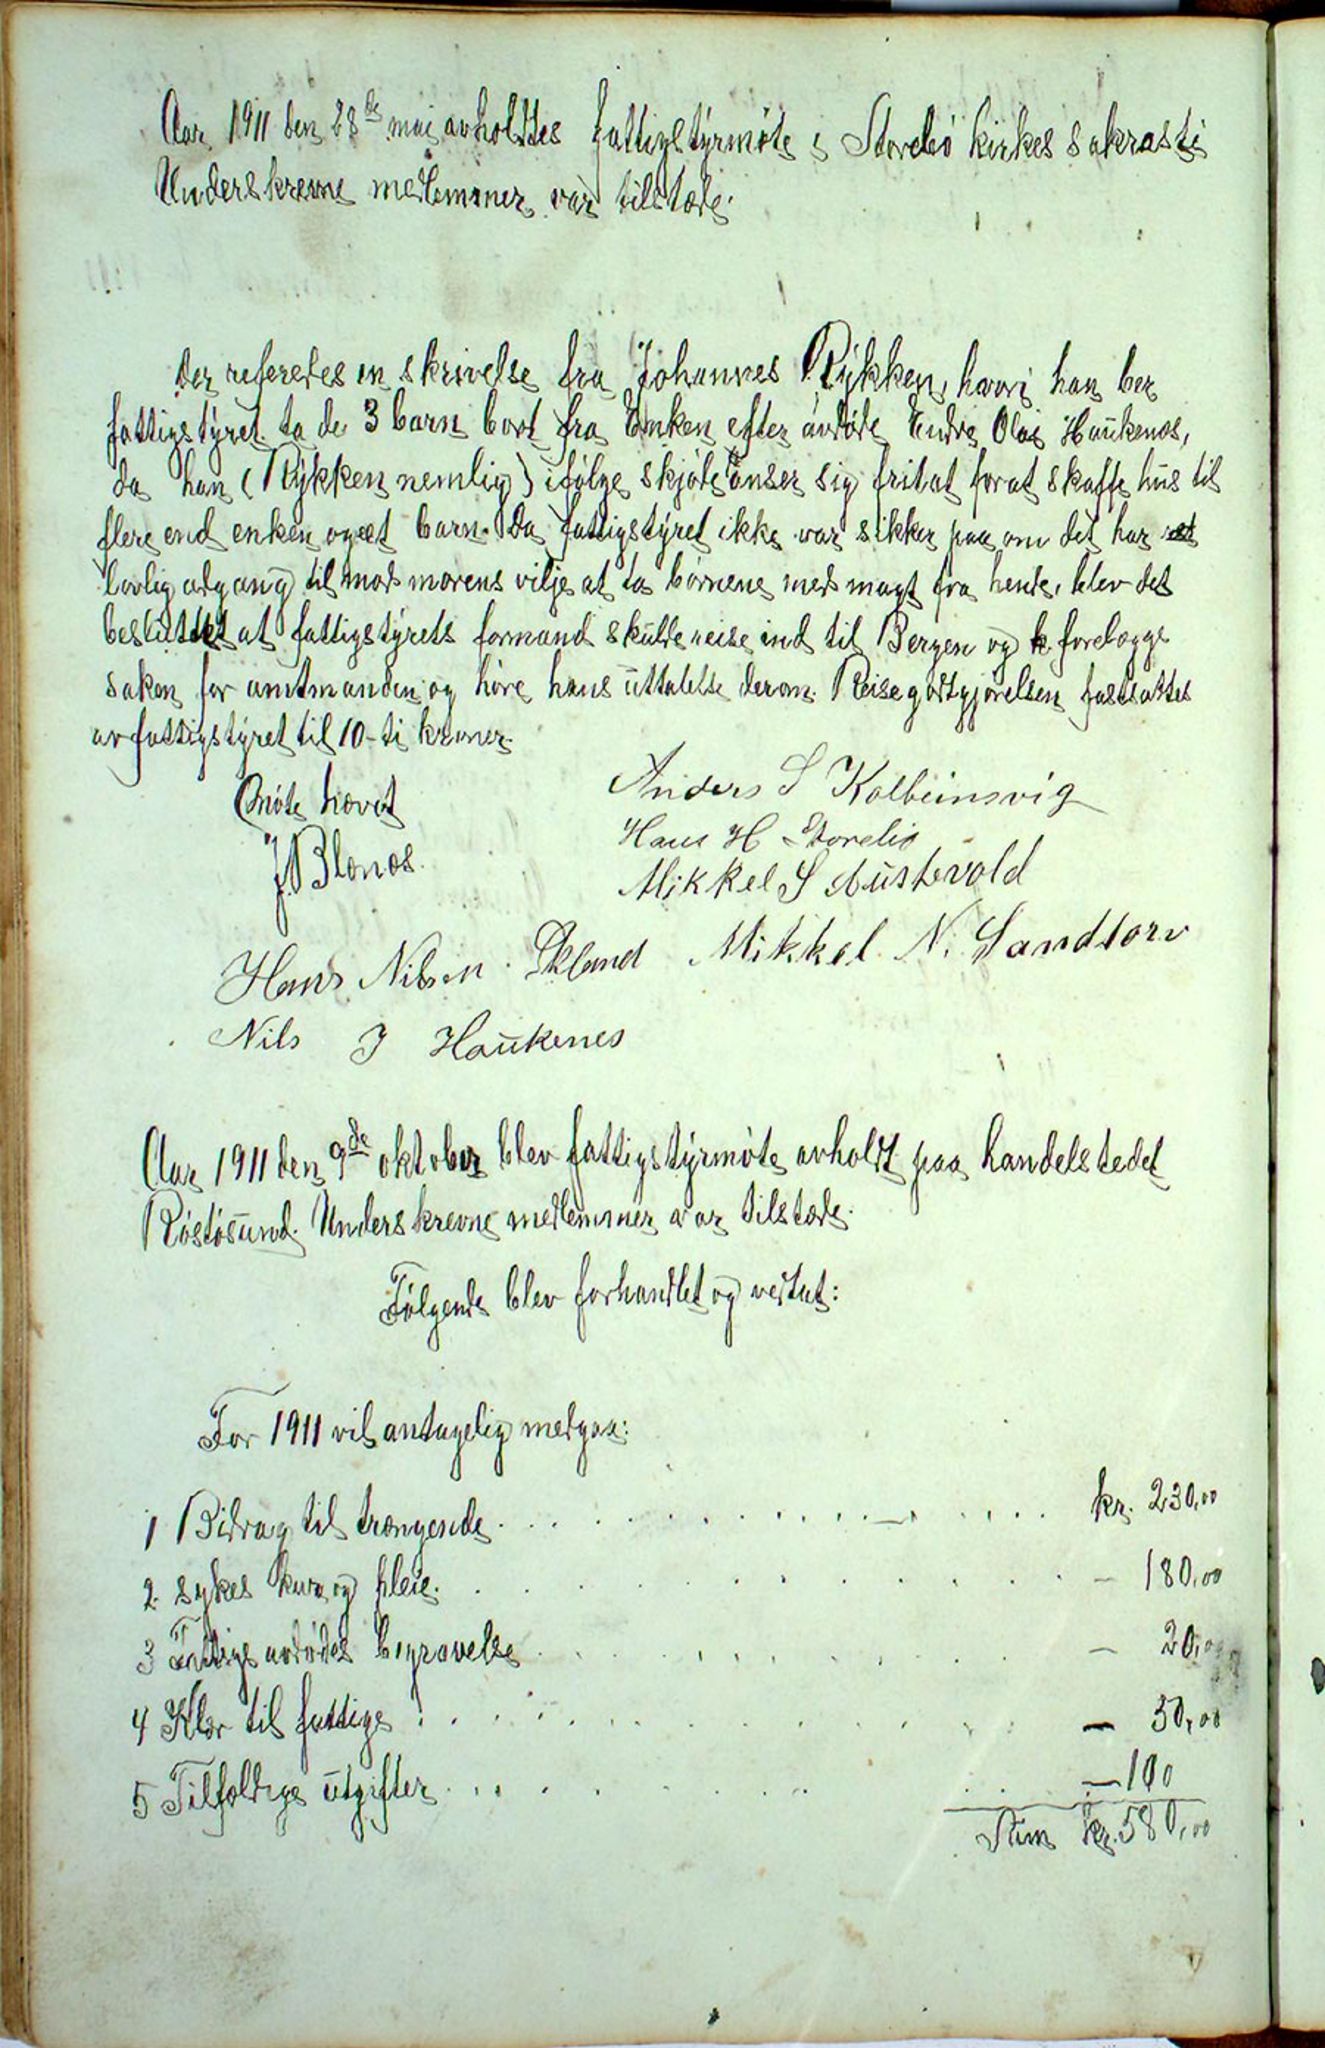 Aar 1911 den 28de mai avholdtes fattigstyrmøte i Storebø kirkes sakrasti
Underskrevne medlemmer var tilstæde.
Der referedes en skrivelse fra Johannes Rykken, hvori han ber
fattigstyret ta de 3 barn bort fra Enken efter avdøde Endre Olai Haukenæs,
da han (Rykken nemlig) ifølge skjøte anser sig fritat forat skaffe hus til
flere end enken og et barn. Da fattigstyret ikke var sikker paa om det har
lovlig adgang til mod morens vilje at ta børnene med magt fra hende, blev det
besluttet at fattigstyrets formand skulde reise ind til Bergen og forelægge
saken for amtmanden og høre hans uttalelse derom. Reisegodtgjørelsen fastsattes
av fattigstyret til 10-ti kroner.
Møte hævet
J. Blænæs.
Anders S Kolbeinsvig
Hans H Storebø
Mikkel S Austevold
Hans Nilsen Økland Mikkel N. Sandtorv
Nils J Haukenes
Aar 1911 den 9de oktober blev fattigstyrmøte avholdt paa handelstedet
Røstøsund. Underskrevne medlemmer var tilstæde.
Følgende blev forhandlet og vedtat:
For 1911 vil antagelig medgaa:
1 Bidrag til trængende . . . . . . . . . . kr. 230,00
2. sykes kur og pleie. . . . . . . . . . . — 180,00
3 Fattige avdødes begravelse . . . . . . . — 20,00
4 Klær til fattige . . . . . . . . . . . . — 50,00
5 Tilfældige utgifter . . . . . . . . . . — 100
Sum kr. 580,00